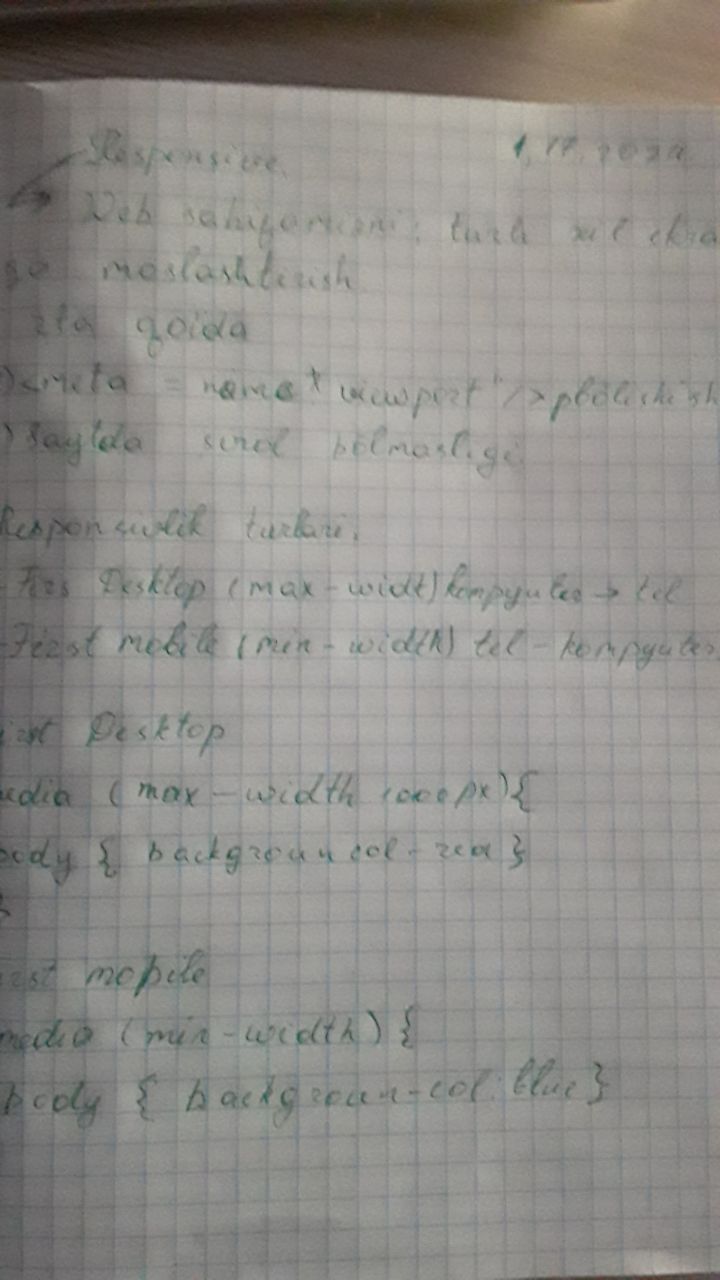 Responsive.
Web sahifamizni turli xil ekra
ga moslashtirish
2ta qoida
)<meta = name "viewport"/> bolishish
) Saytda scrol bolmasligi
Responsivlik turlari.
-Firs Desktop (max-widt) kompyuter → tel
-First mobile (min-width) tel - kompyuter
irst Desktop
edia (max-width 1000px){
body { backgroun col-red }
}
rst mobile
media (min-width) {
body { backgroun-col: blue}